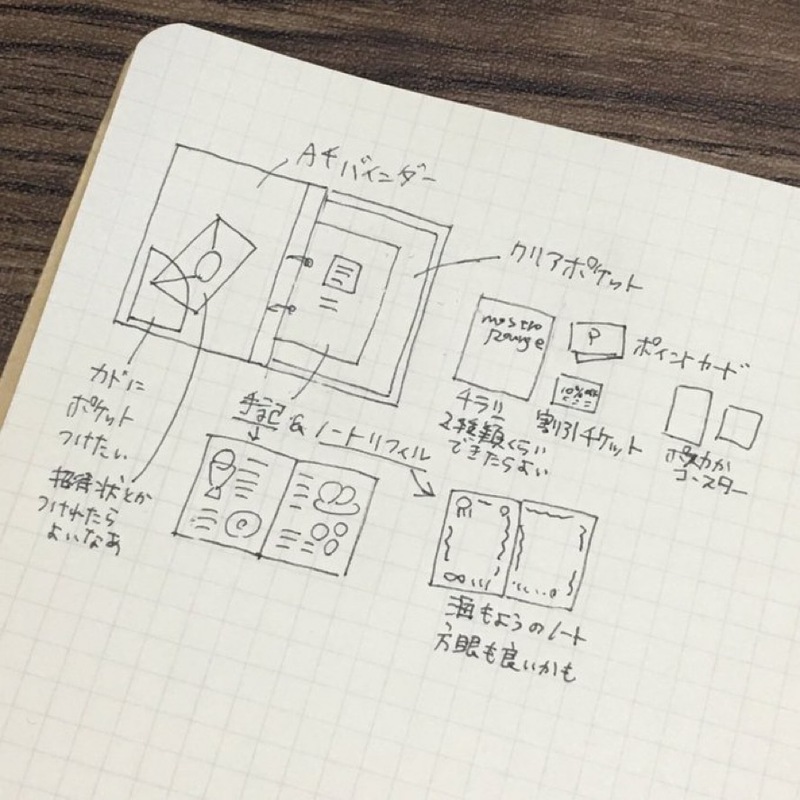 A4 バインダー
クリアポケット
mostro
Range
P
ポイントカード
10% OFF
カドに
ポケット
つけたい
チラシ
2種類くらい
できたらよい
割引チケット
ポスカか
コースター
手記 & ノートリフィル
招待状とか
つけれたら
よいなあ
海もようのノート
方眼も良いかも